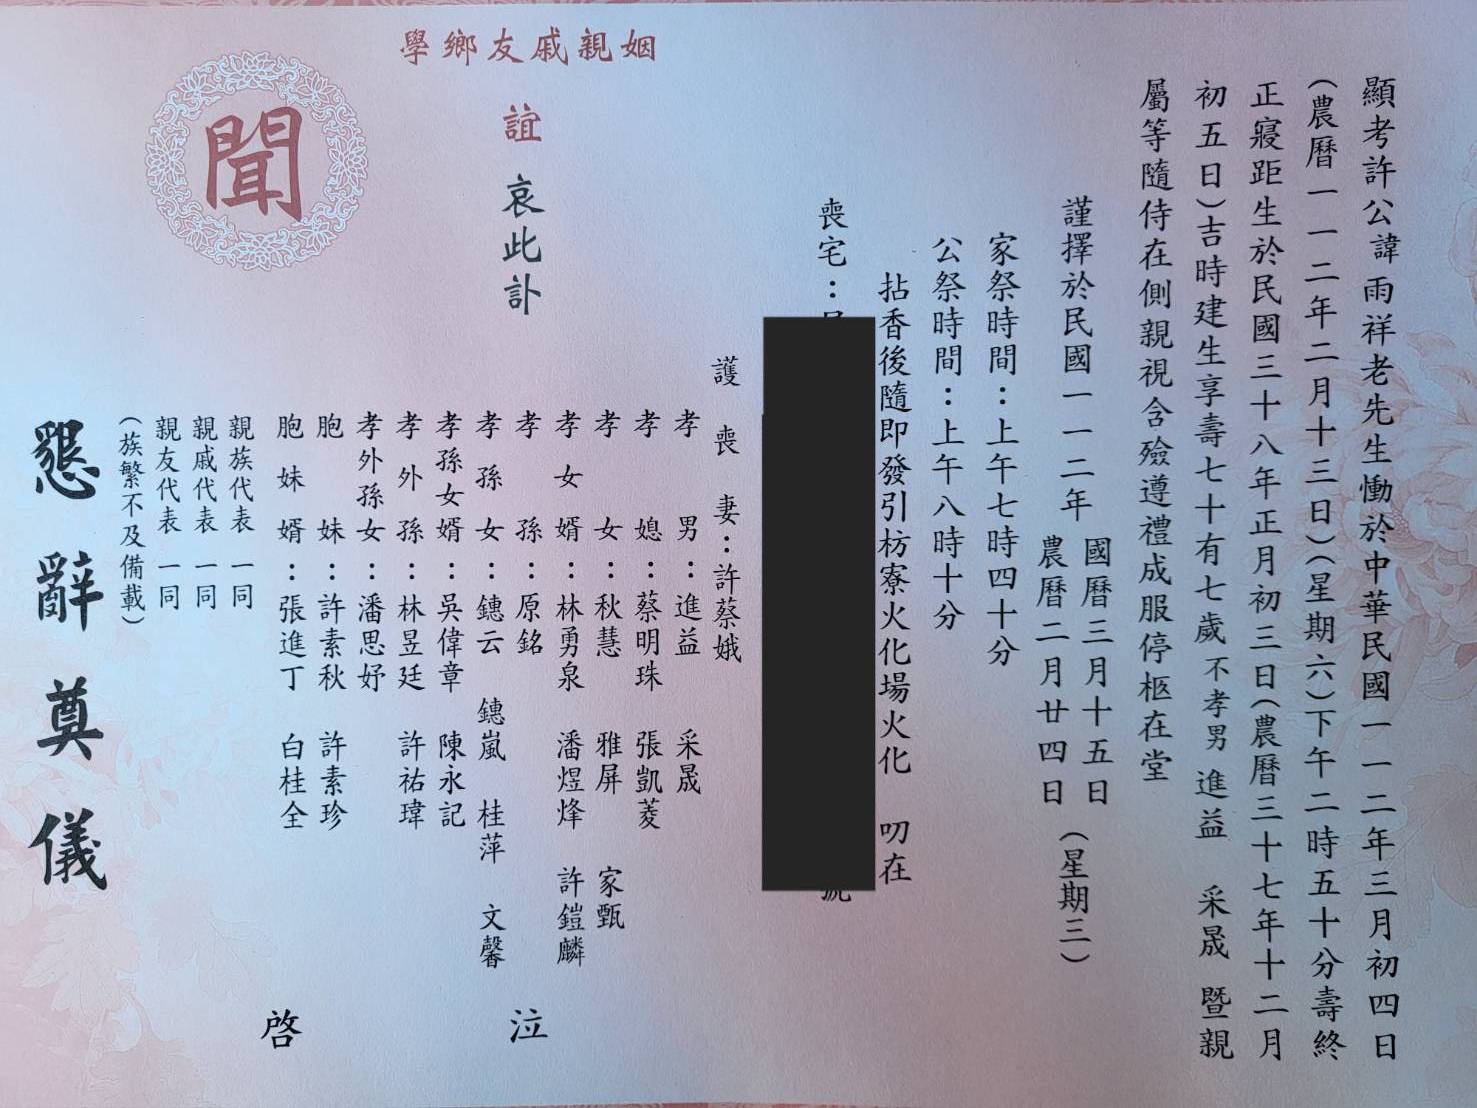 顯考許公諱雨祥老先生慟於中華民國一一二年三月初四日
(農曆一一二年二月十三日)(星期六)下午二時五十分壽終
正寢距生於民國三十八年正月初三日(農曆三十七年十二月
初五日)吉時建生享壽七十有七歲不孝男進益 采晟 暨親
屬等隨侍在側親視含殮遵禮成服停柩在堂
謹擇於民國一一二年 國曆三月十五日 (星期三)
農曆二月廿四日
家祭時間:上午七時四十分
公祭時間:上午八時十分
拈香後隨即發引枋寮火化場火化 叨在
喪宅:
號
護喪妻:許蔡娥
孝男:進益 采晟
孝媳:蔡明珠 張凱菱
孝女:秋慧 雅屏 家甄
孝女婿:林勇泉 潘煜烽 許鎧麟
孝孫:原銘
孝孫女:鏸云 鏸嵐 桂萍 文馨
孝孫女婿:吳偉章 陳永記
孝外孫:林昱廷 許祐瑋
孝外孫女:潘思妤
胞妹:許素秋 許素珍
胞妹婿:張進丁 白桂全
親族代表一同
親戚代表一同
親友代表一同
(族繁不及備載)
泣
啓
姻親戚友鄉學
誼 哀此訃
聞
懇辭奠儀